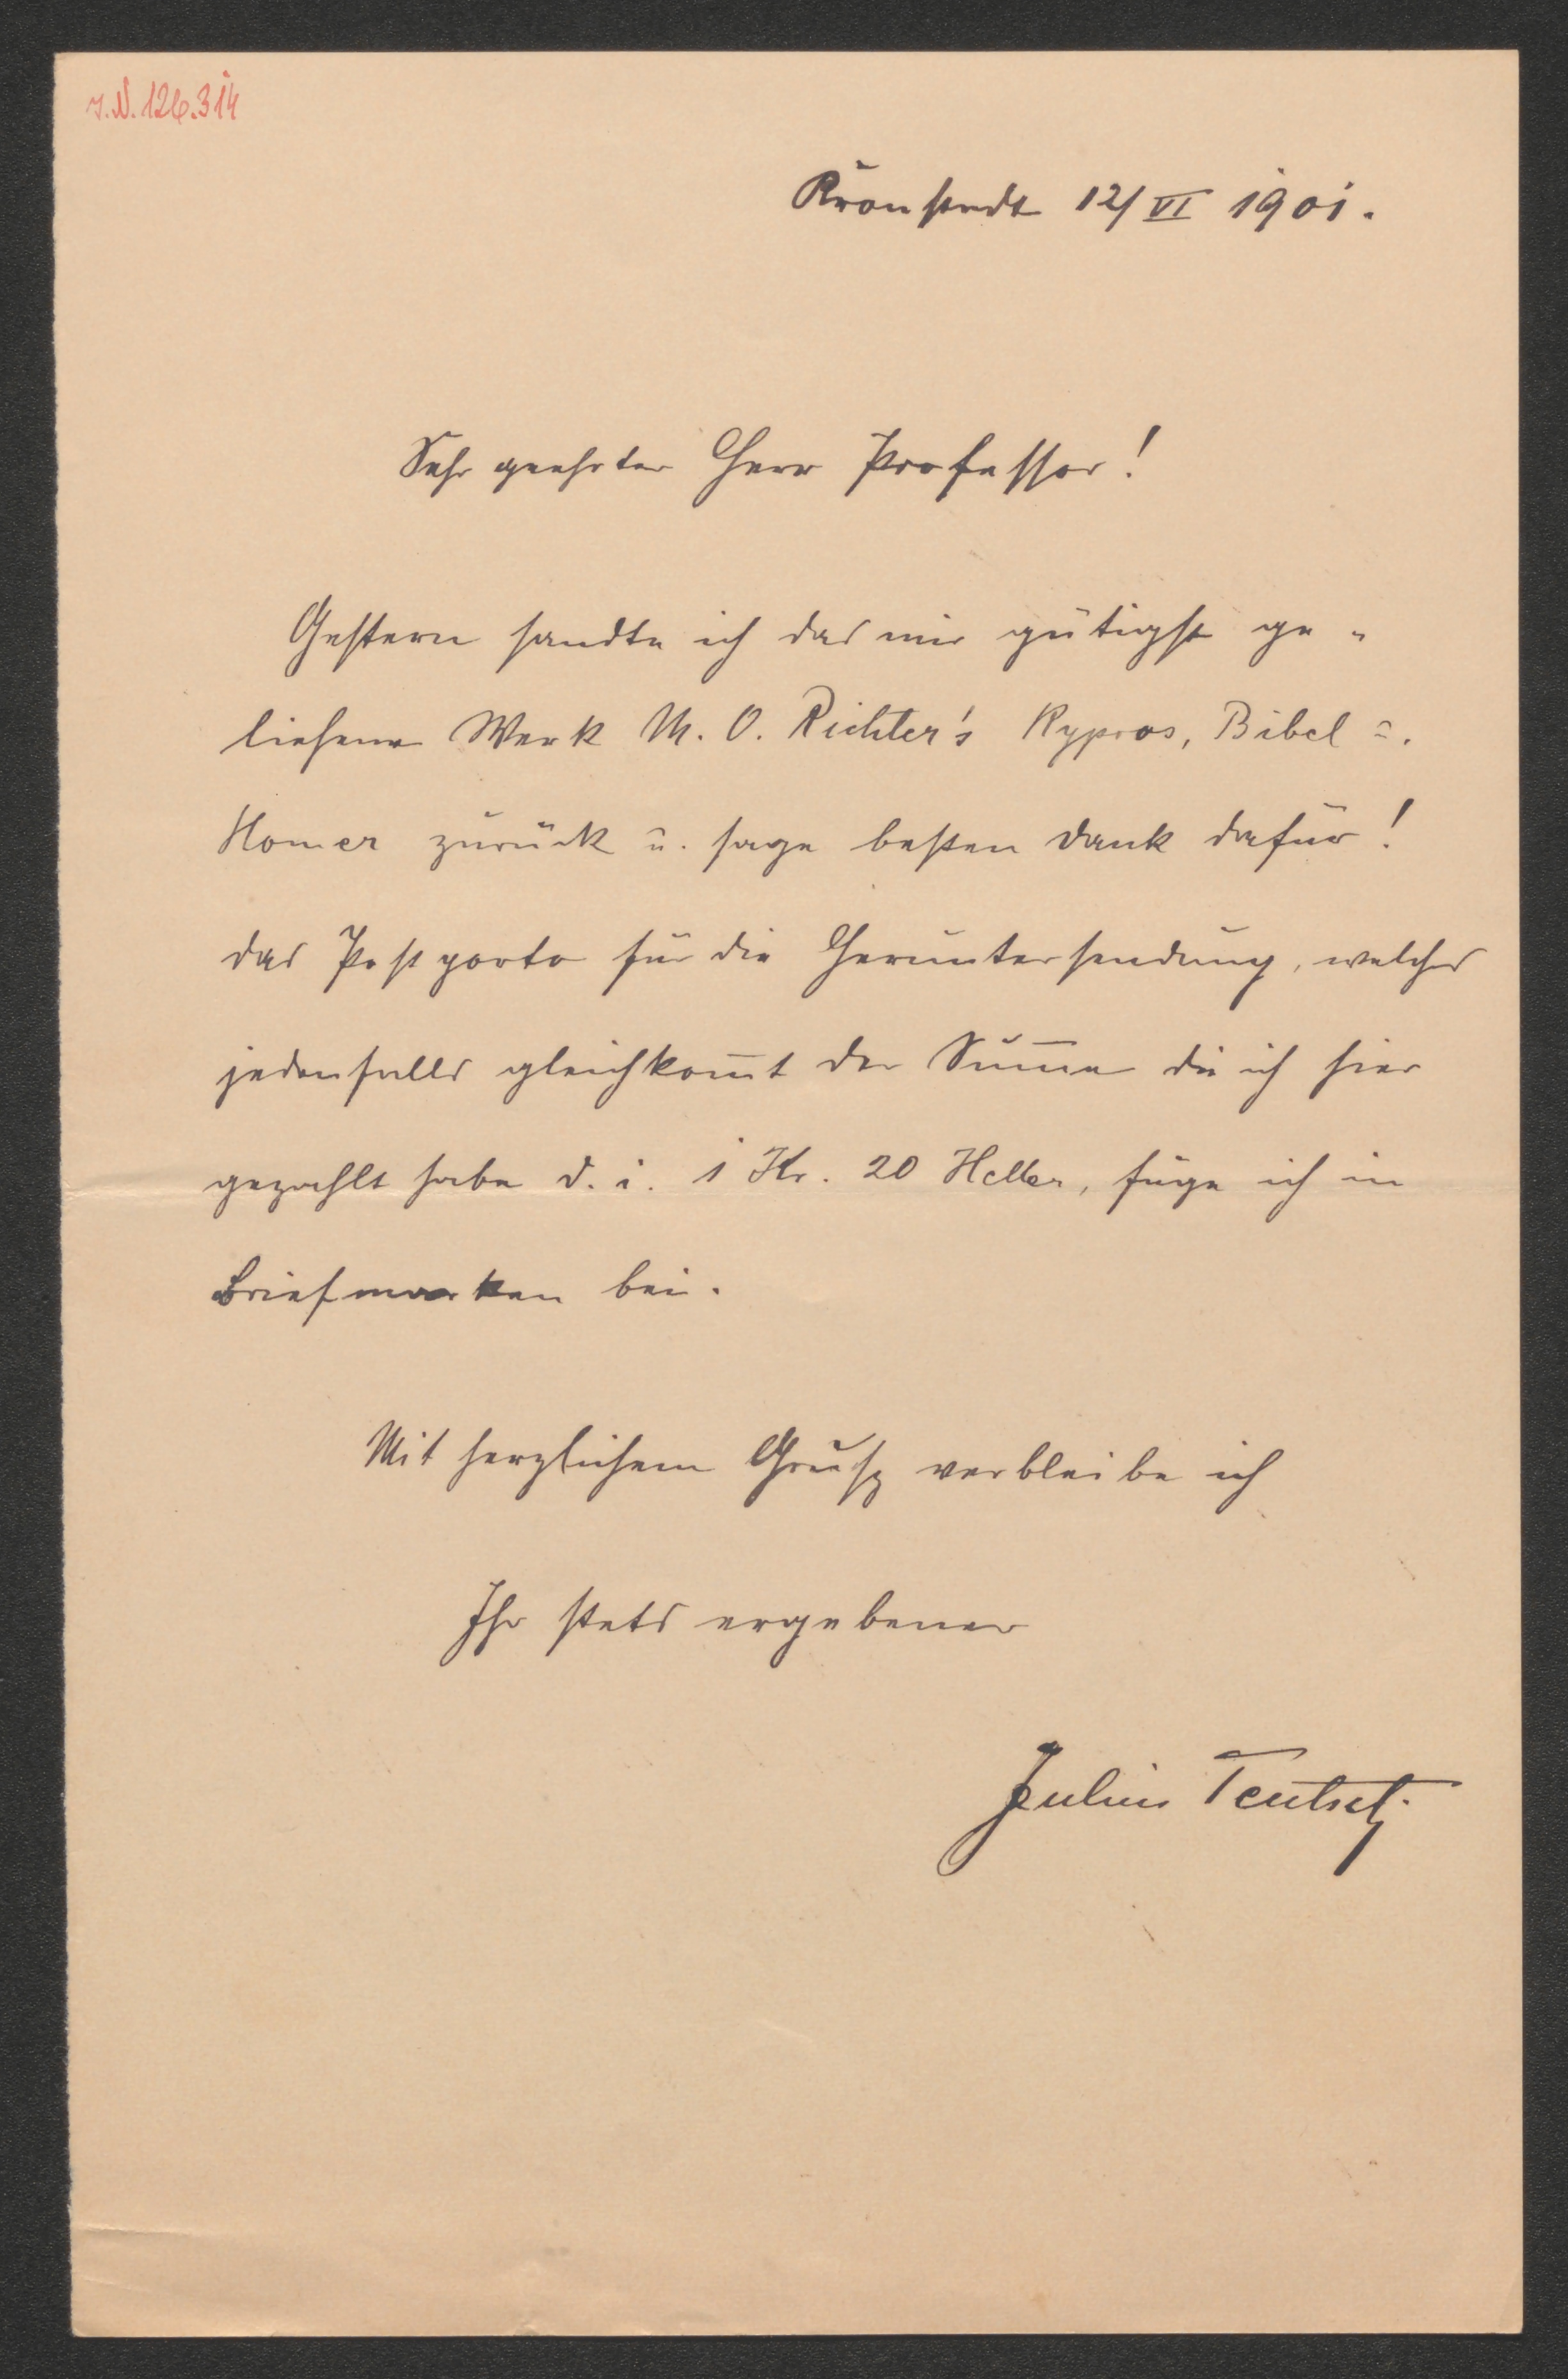 J.N. 126.314
Kronstadt 12/VI 1901.
Sehr geehrter Herr Professor!
Gestern sandte ich das mir gütigst ge-
liehene Werk M. O. Richter's Kypros, Bibel u.
Homer zurück u. sage besten Dank dafür!
Das Postporto für die Heruntersendung, welches
jedenfalls gleichkom̅t der Sum̅e die ich hier
gezahlt habe d. i. 1 Kr. 20 Heller, füge ich in
Briefmarken bei.
Mit herzlichem Gruß verbleibe ich
Ihr stets ergebener
Julius Teutsch